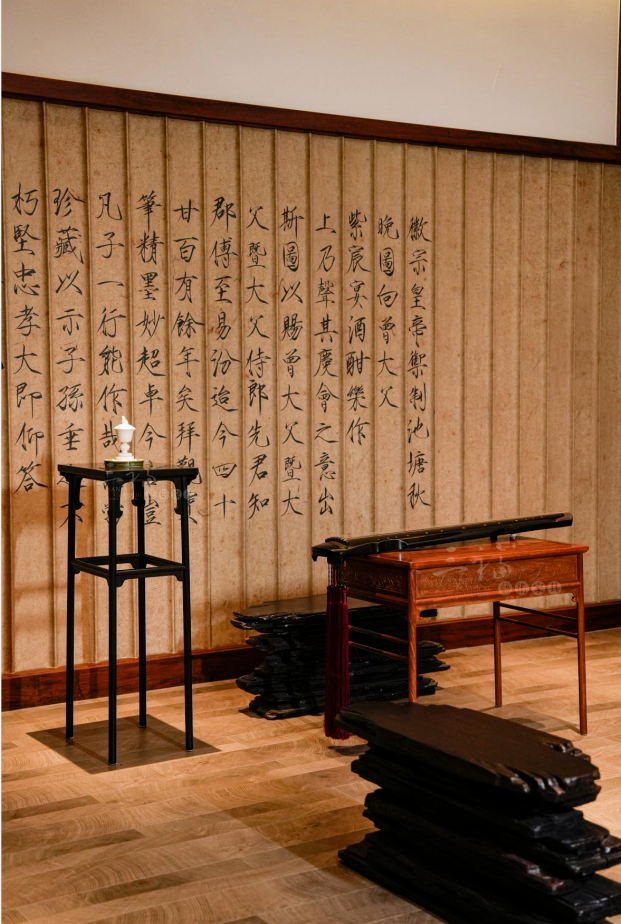 徽宗皇帝禦制池塘秋
晚圖向曾大父
紫宸宴酒酣樂作
上乃聲其慶會之意出
斯圖以賜曾大父暨大
父暨大父侍郎先君知
郡傳至易汾迨今四十
甘百有餘年矣拜觀寶
筆精墨妙超卓今古豈
凡子一行能作哉
珍藏以示子孫垂
朽堅忠孝大即仰答